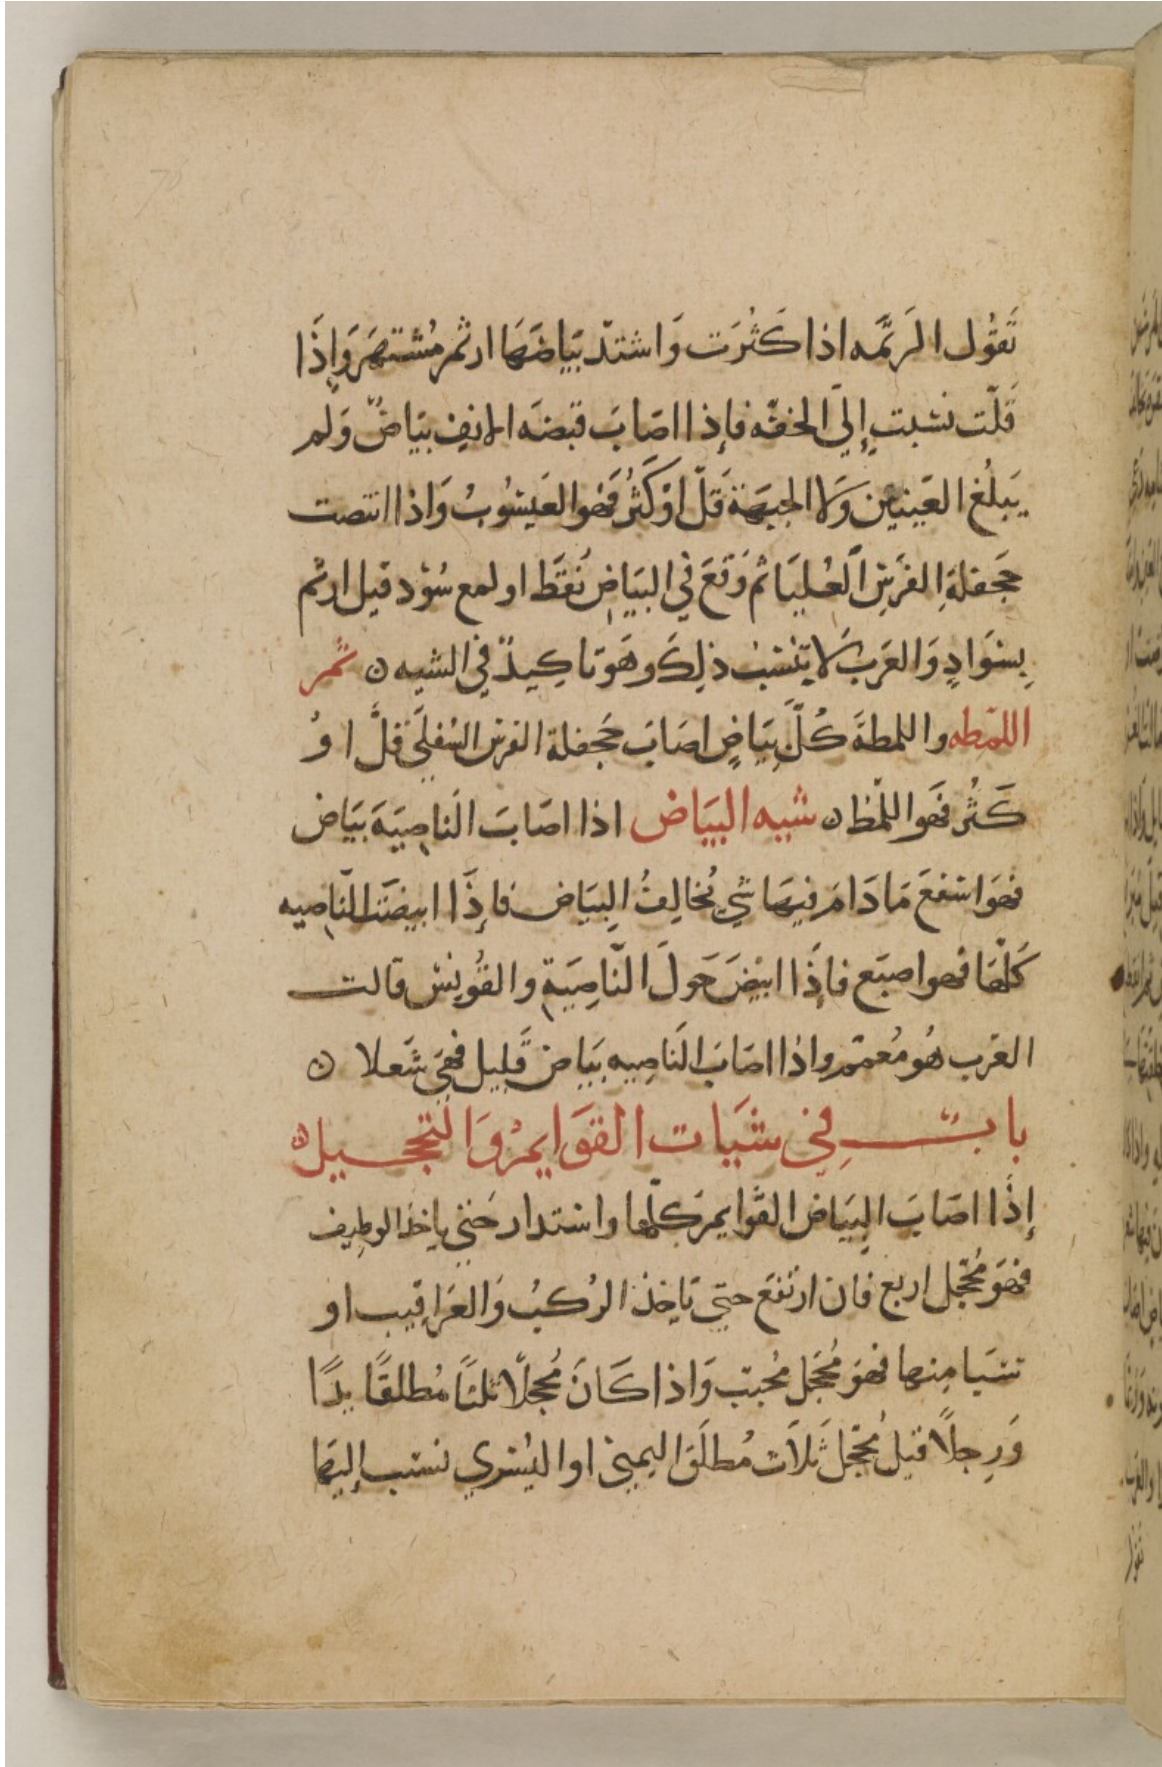 تَقُول الرَثمَه اذا كَثُرَت وَاشتدّ بَيَاضهَا ارثمر مُشتهَر وَإِذَا
قَلّت نسبت إِلَى الخفّه فاِذا اصَابَ قبضَه الانفِ بيَاضٌ وَلَم
يَبلُغ العَينَين وَلا الجبهَة قَلّ اوْ كَثُر فهُو العَيسُوبُ وَاذا ابيضت
جحفلةِ الفَرَسِ العُليَا ثم وَقعَ فِي البيَاضِ نُقَط او لمع سُوْد قيل ارثم
بِسَوَادٍ وَالعَربُ لا تنسب ذلِكَ وهَو تاكِيدٌ في الشيه ثمر
اللمظه واللمظة كُلّ بيَاضٍ اصَابَ جَحفلة الفرس السُفلَى قلّ اوُ
كَثُر فهَو اللّمظ شيه البيَاض اذا اصَابَ النَاصِيَةَ بيَاض
فهَو اسْفعَ مَا دَامَ فيهَا شَي يُخالِفُ البيَاض فاِذَا ابيضّت النّاصِيه
كَلّهَا فهوا صبَع فاِذَا ابيْضَ حَولَ النّاصِيَةِ والقُوْنِس قالت
العَرب هُو مُعمّمر واذا اصَابَ النَاصِيه بيَاض قَلِيل فهِيَ شعلا
باب في شيَات القَوَايمرْ وَالتحجيل
إِذَا اصَابَ البيَاض القَوايمرَ كلّها واستدار حَتي ياخذ الوظيف
فهَو مُحّجل اربع فان ارتفعَ حتي يَاخِذ الرُكبُ وَالعَراقيب او
شيَا مِنها فهوَ مُحَجل مُحبّب وَاذا كَانَ مُحجلًا ثلثاً مُطلقًا يدًا
وَرِجلًا قيل مُحّجل ثَلاَث مُطلَق اليمِني او اليُسري نسب إليَهَا